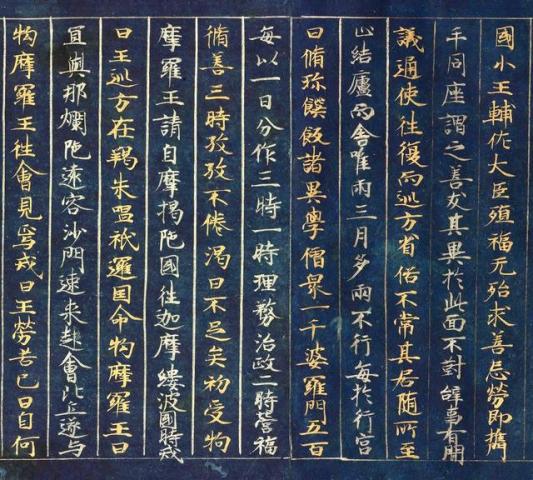 國小王輔佐大臣殖福无殆求善忘勞即攜
手同座謂之善友其異於此面不對辝事有聞
議通使往復而巡方省俗不常其居随所至
止結廬而舍唯雨三月多雨不行每於行宮
日脩珎饌飯諸異學僧衆一千婆羅門五百
每以一日分作三時一時理務治政二時營福
脩善三時孜孜不倦渴日不足矣初受拘
摩羅王請自摩揭陁國往迦摩縷波國時戒
日王巡方在羯朱嗢祇邏国命拘摩羅王曰
宜與那爛陁遠客沙門速来赴會比丘遂与
拘摩羅王往會見焉戒日王勞苦已曰自何